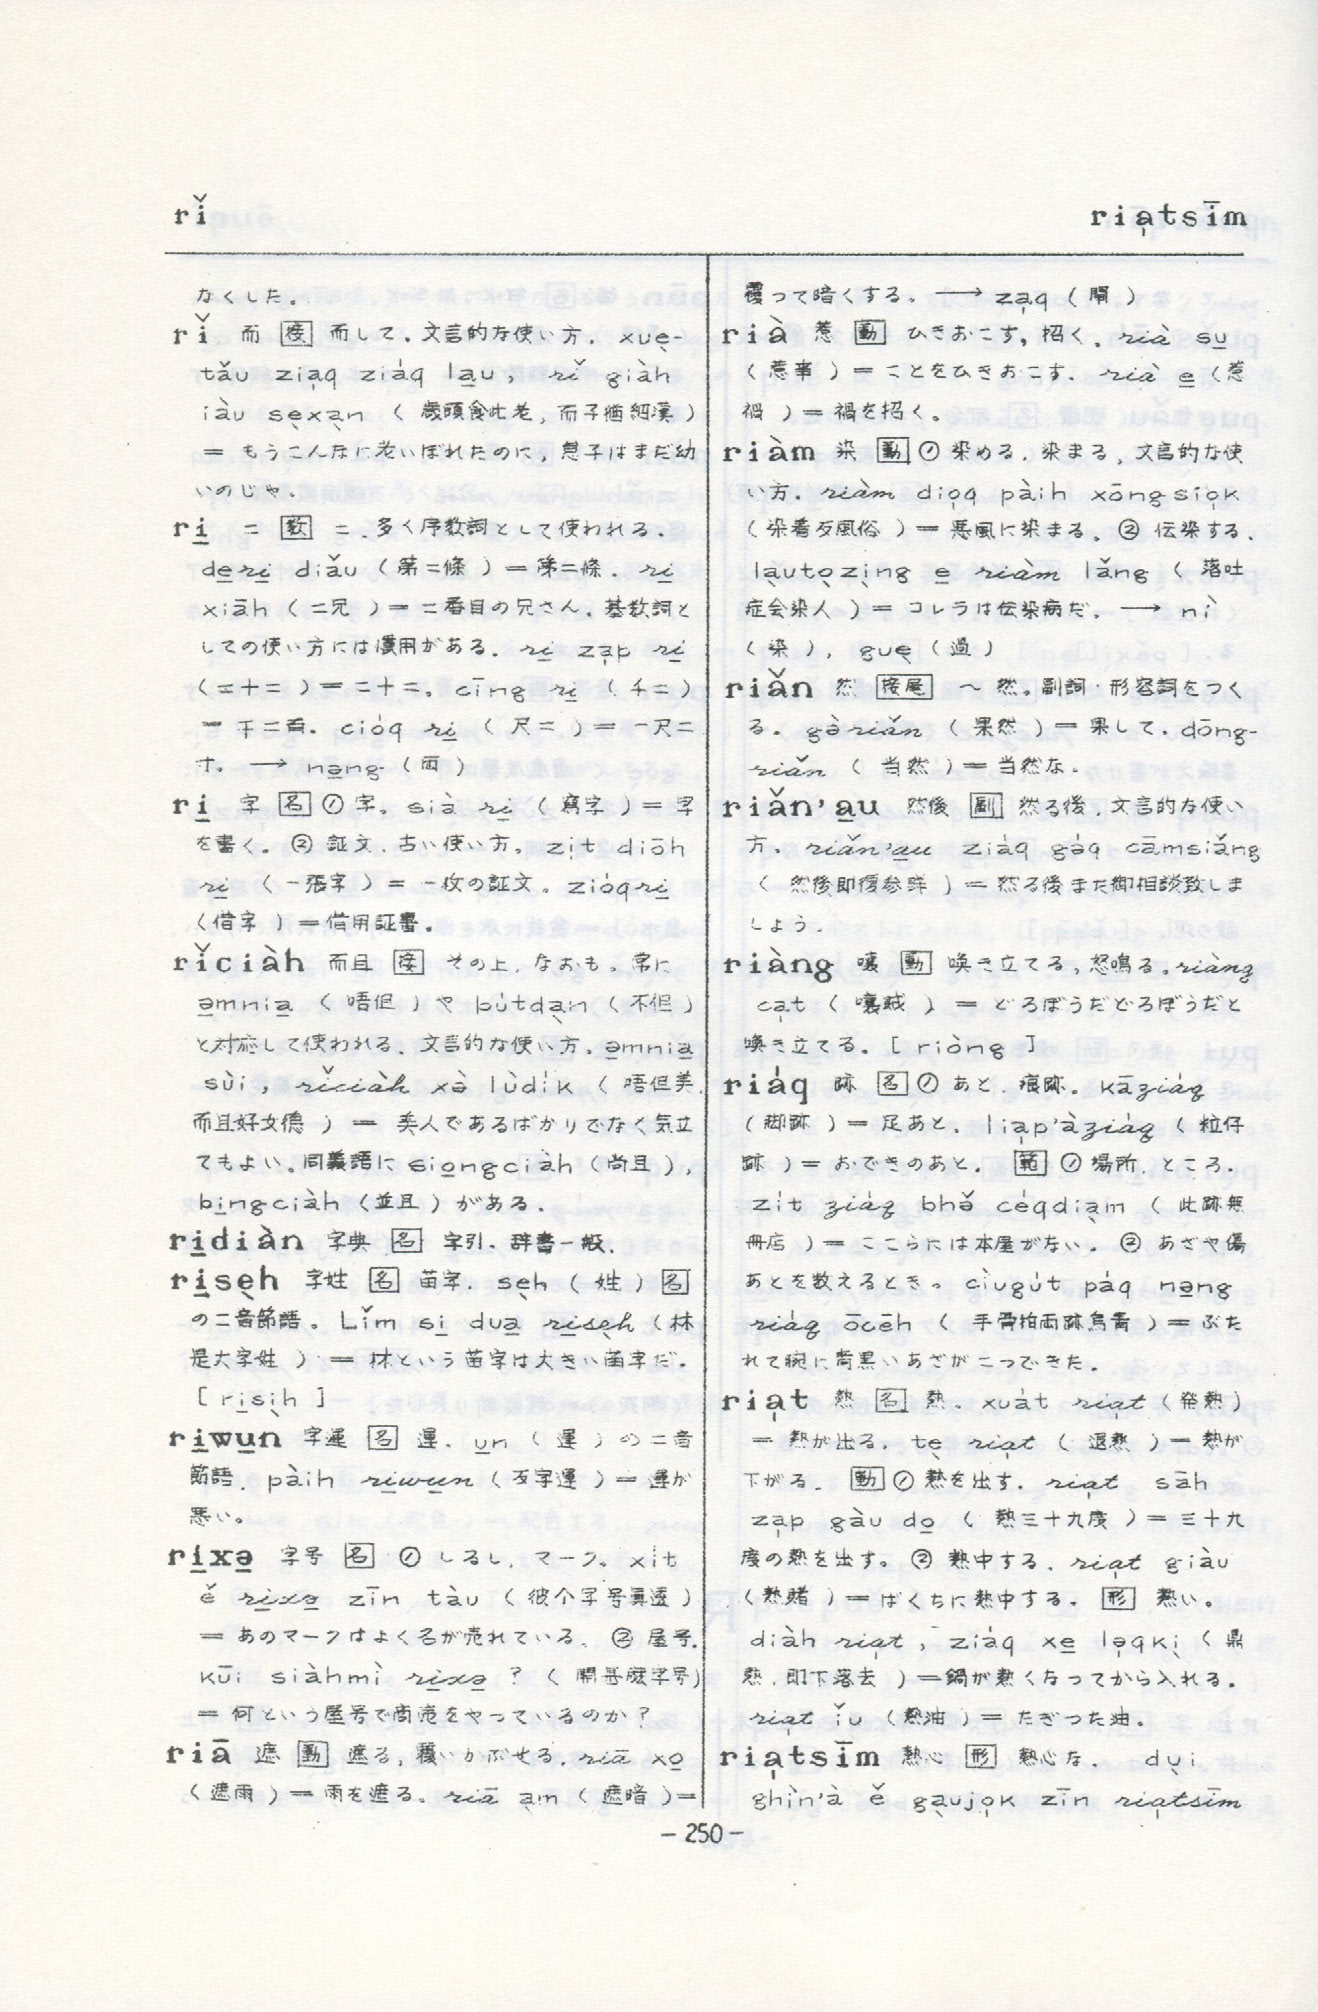 rǐ
ria̩tsīm
なくした。
rǐ 而 接 而して．文言的な使い方．xue̩-
tǎu zia̩q ziáq la̱u, rǐ giàh
iàu se̩xa̩n（歳頭食此老，而子猶細漢）
＝もうこんなに老いぼれたのに，息子はまだ幼
いのじゃ．
ri̱ 二 数 二．多く序数詞として使われる．
de̱ri̱ diǎu（第二條）＝第二條．ri̱
xiāh（二兄）＝二番目の兄さん．基数詞と
しての使い方には慣用がある．ri̱ za̩p ri̱
（二十二）＝二十二。cīng ri̱（千二）
＝千二百．cióq ri̱（尺二）＝一尺二
寸．→ nə̱ng（両）
ri̱ 字 名 ① 字．sià ri̱（寫字）＝字
を書く。② 証文．古い使い方。zi̩t diōh
ri̱（一張字）＝一枚の証文。zióqri̱
（借字）＝借用証書。
rǐciàh 而且 接 その上．なおも。常に
ə̱mnia̱（唔但）や bútda̩n（不但）
と対応して使われる．文言的な使い方．ə̱mnia̱
sùi, rǐciàh xə̀ lùdík（唔但美，
而且好女徳）＝ 美人であるばかりでなく気立
てもよい。同義語に sio̱ngciàh（尚且），
bi̱ngciàh（並且）がある．
ri̱diàn 字典 名 字引．辞書一般．
ri̱se̩h 字姓 名 苗字．se̩h（姓）名
の二音節語。Lǐm si̱ dua̱ ri̱se̩h（林
是大字姓）＝林という苗字は大きい苗字だ。
[ ri̱si̩h ]
ri̱wu̱n 字運 名 運．u̱n（運）の二音
節語．pàih ri̱wu̱n（歹字運）＝運が
悪い。
ri̱xə̱ 字号 名 ① しるし．マーク。xit
ě ri̱xə̱ zīn tàu（彼个字号真透）
＝あのマークはよく名が売れている．② 屋号．
kūi siàhmì ri̱xə̱ ?（開甚麼字号）
＝何という屋号で商売をやっているのか？
riā 遮 動 遮る，覆いかぶせる．riā xo̱
（遮雨）＝雨を遮る．riā a̩m（遮暗）＝
覆って暗くする。→ za̩q（閘）
rià 惹 動 ひきおこす，招く．rià su̱
（惹事）＝ことをひきおこす．rià e̱（惹
禍）＝禍を招く。
riàm 染 動 ① 染める．染まる．文言的な使
い方．riàm dio̩q pàih xōngsio̩k
（染着歹風俗）＝悪風に染まる。② 伝染する．
la̱uto̩zi̱ng e̱ riàm lǎng（落吐
症会染人）＝コレラは伝染病だ。→ nì
（染），gue̩（過）
riǎn 然 接尾 ～然。副詞・形容詞をつく
る。gə̀riǎn（果然）＝果して．dōng-
riǎn（当然）＝当然な．
riǎn'a̱u 然後 副 然る後．文言的な使い
方．riǎn'a̱u ziáq gə̩q cāmsiǎng
（然後即復参詳）＝然る後また御相談致しま
しょう．
riàng 嚷 動 喚き立てる，怒鳴る。riàng
ca̩t（嚷賊）＝どろぼうだどろぼうだと
喚き立てる．[ riòng ]
riáq 跡 名 ① あと．痕跡．kāziáq
（脚跡）＝足あと．lia̩p'àziáq（粒仔
跡）＝おできのあと．範 ① 場所．ところ．
zít ziáq bhə̌ céqdia̩m（此跡無
冊店）＝ここらには本屋がない。② あざや傷
あとを数えるとき。cìugút páq nə̱ng
riáq ōcēh（手骨拍両跡烏青）＝ぶた
れて腕に青黒いあざが二つできた．
ria̩t 熱 名 熱．xuát ria̩t（発熱）
＝熱が出る．te̩ ria̩t（退熱）＝熱が
下がる．動 ① 熱を出す．ria̩t sāh
za̩p gàu do̱（熱三十九度）＝三十九
度の熱を出す。② 熱中する．ria̩t giàu
（熱賭）＝ばくちに熱中する。形 熱い。
diàh ria̩t, ziáq xe̱ lə̩qki̩（鼎
熱，即下落去）＝鍋が熱くなってから入れる。
ria̩t ǐu（熱油）＝たぎった油．
ria̩tsīm 熱心 形 熱心な． du̩i
ghìn'à ě ga̩ujo̩k zīn ria̩tsīm
－250－